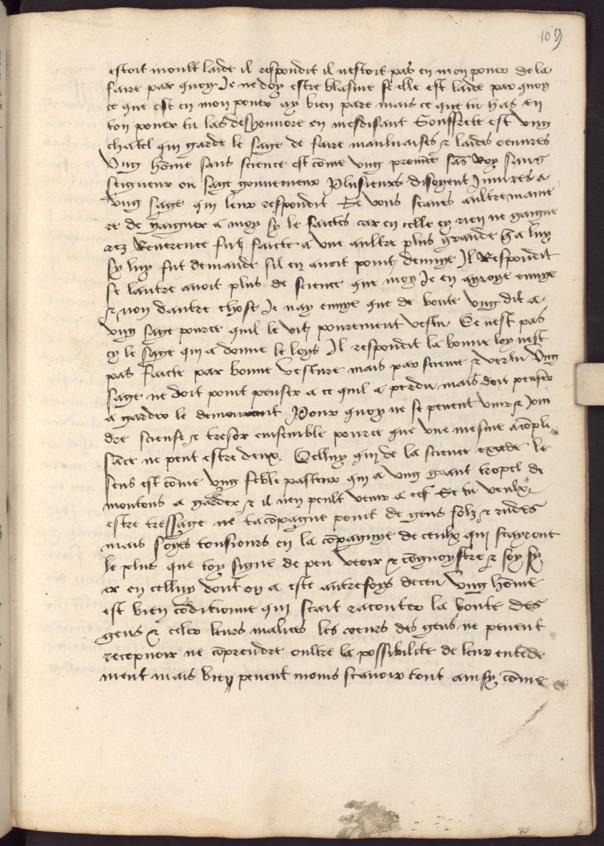 109
estoit moult laide il respondit il nestoit pas en mon pouoir de la
faire par quoy Je ne doy estre blasme se elle est laide par quoy
ce que est en mon pouoir ay bien pare mais ce que tu has en
ton pouoir tu las deshonnore en mesdisant Souffrete est ung
chastel qui garde le sage de faire mauluaises & laides oeuures
Ung hõme sans science est cõme ung prouince sãs Roy sans
seigneur ou sage gouuerneur Plusieurs disoyent Iniures a
ung sage qui leur respondit Se vous scaues aultre manie
re de gaigner a moy sy le faictes car en celle cy rien ne gaigne
rez Reuerence fut faicte a une aultre plus grande q̃ a luy
sy luy fut demande sil en auoit point denuye Il Respondit
se lautre auoit plus de science que moy Je en auroye enuye
& non dautre chose Je nay enuye que de bonte ung dit a
ung sage pource quil le vit pourement vestu Ce nest pas
cy le sage qui a donne le loys Il respondit la bonne loy nest
pas faicte par bonne vesture mais par science & vertu Ung
sage ne doit point penser a ce quil a perdu mais doit penser
a garder le demourant Pour quoy ne se peuent unir & Ioin
dre science & tresor ensemble pource que une mesme acõpli
sãce ne peut estre deux. Celluy qui de la science excede le
sens est cõme ung feble pasteur qui a ung grant tropel de
moutons a garder & il nen peult venir a cef Se tu veulx
estre tressage ne tacõpagne point de gens folz & rudes
mais soyes tousiours en la cõpagnye de ceulx qui scayront
le plus que toy signe de peu veoir & congnoystre & soy fy
er en celluy dont on a este autrefoys deceu Ung hõme
est bien cõditionne qui scait raconter la bonte des
gens & celer leurs malices les coeurs des gens ne peuent
recepuoir ne cõprendre oultre la possibilite de leur entẽde
ment mais bien peuent moins scauoir tout ainsy cõme